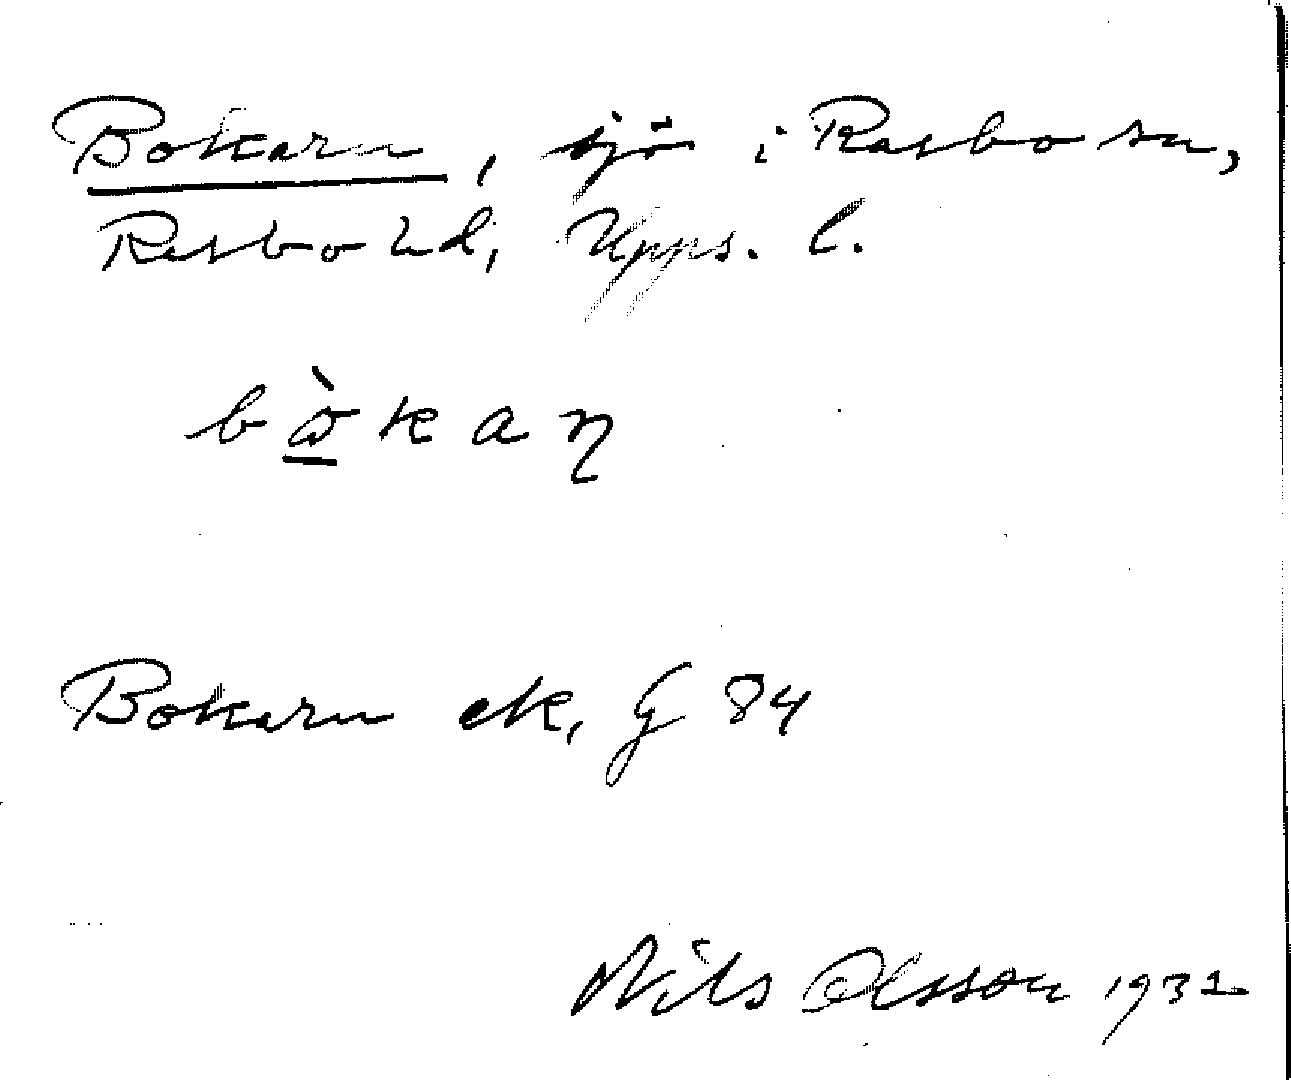 Bokarn, sjö i Rasbo sn,
Rasbo hd, Upps. l.
bò̠kaɳ
Bokarn ek, G 84
Nils Olsson 1932